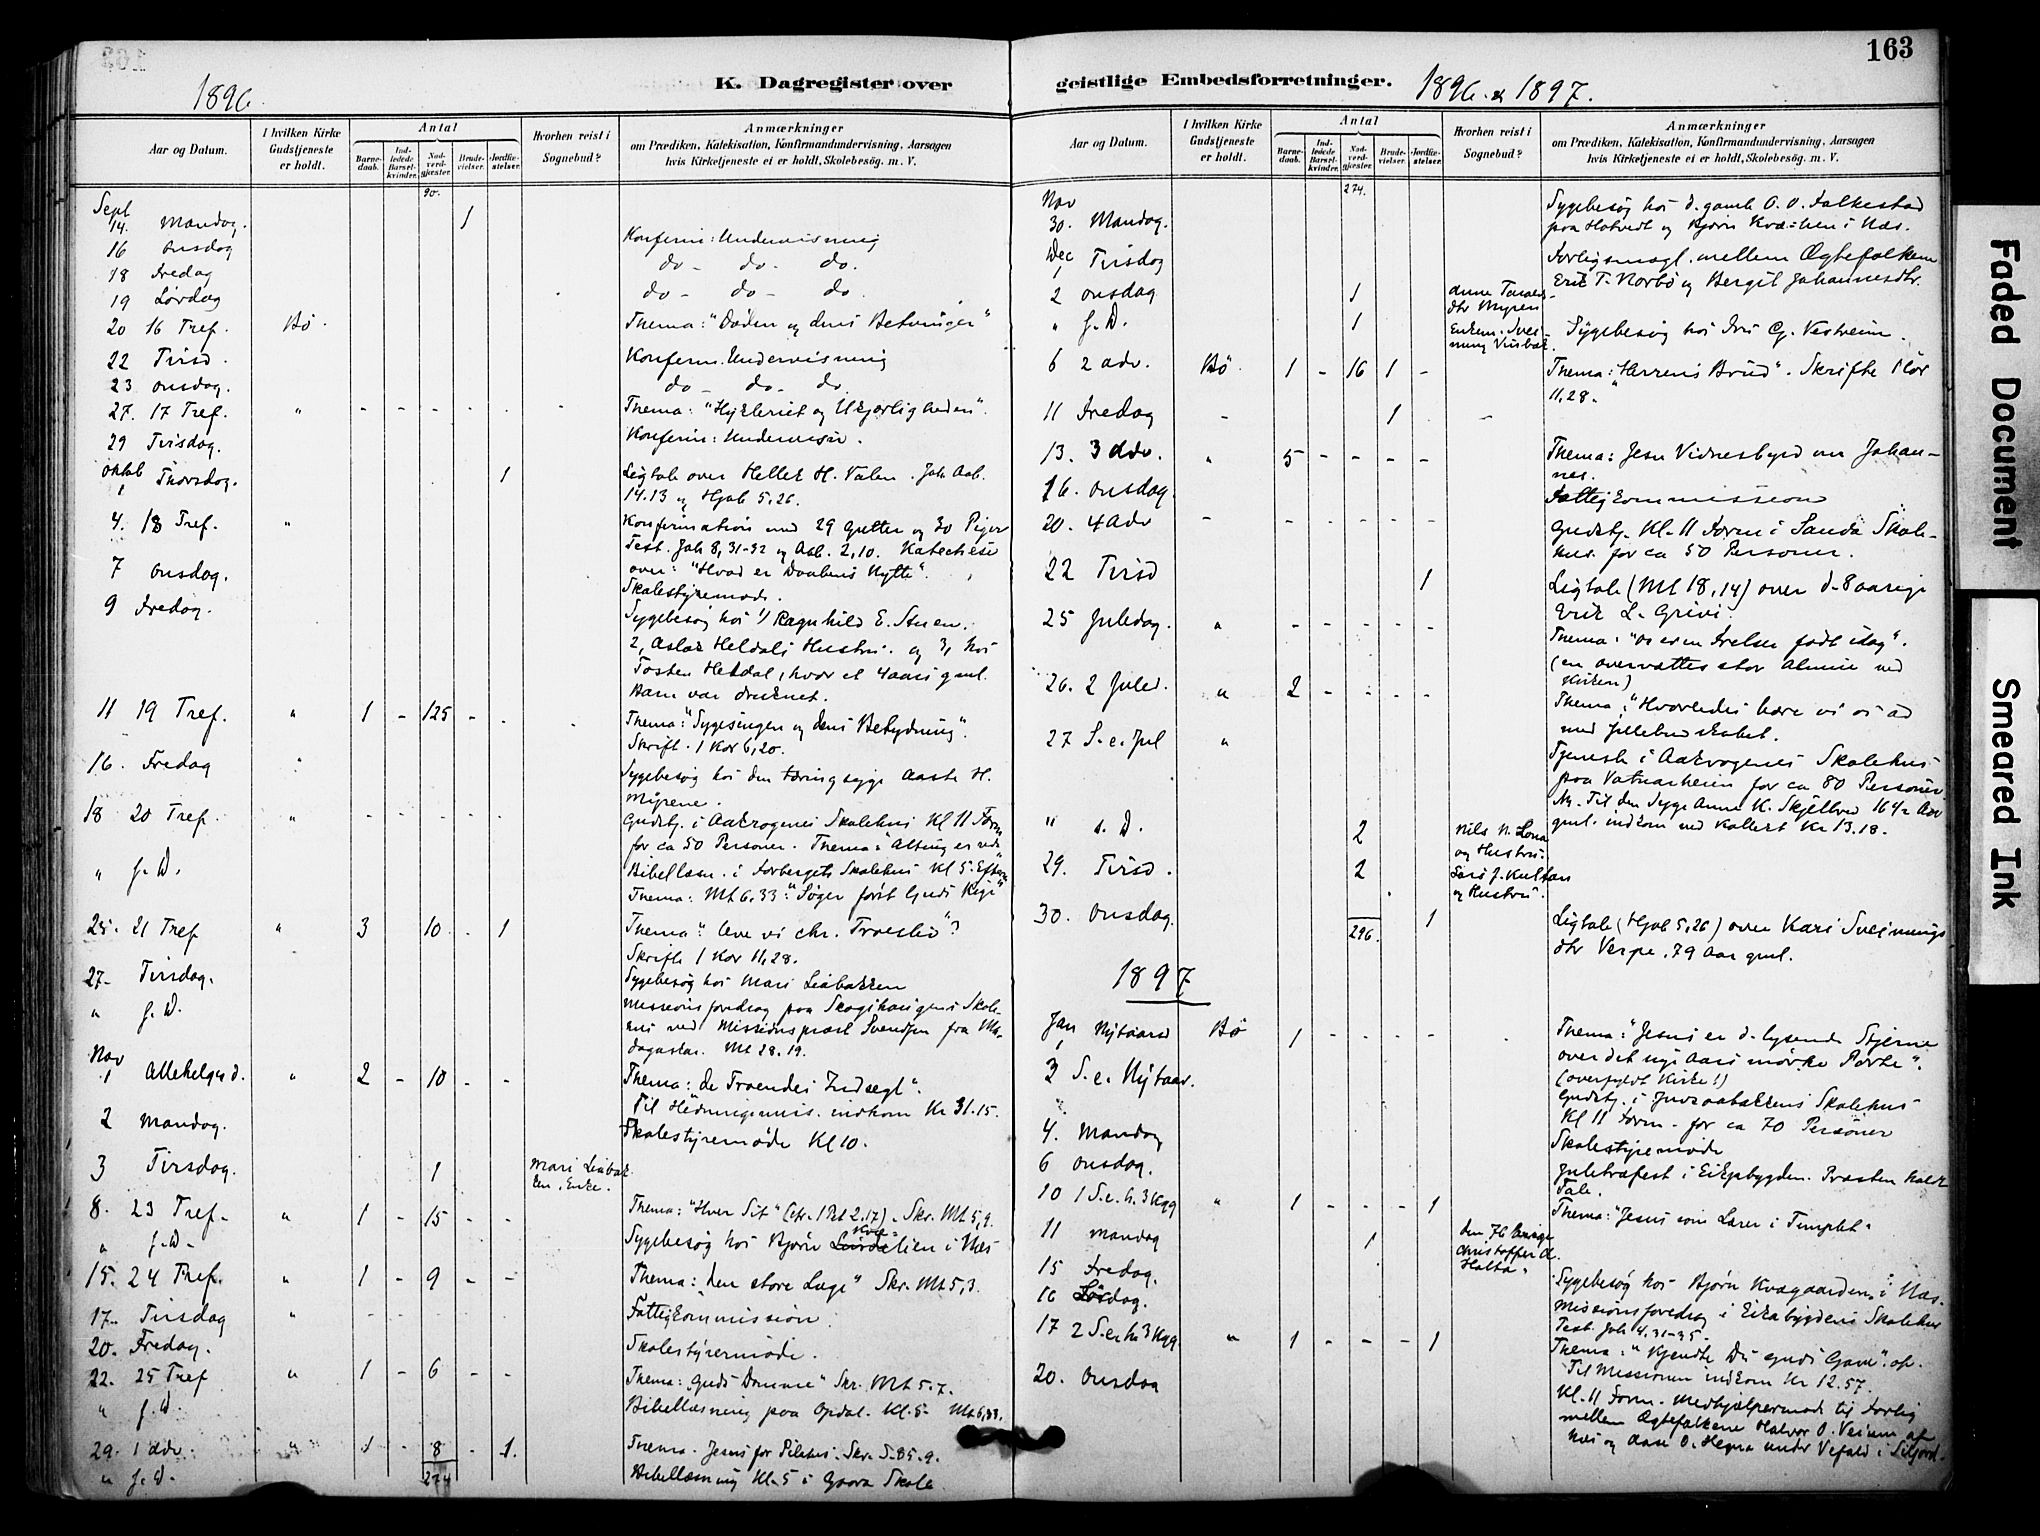 163
K. Dagregister over
geistlige Embedsforretninger.
1896.
1896. & 1897.
Aar og Datum.
I hvilken Kirke Gudstjeneste er holdt.
Antal
Barnedaab.
Indledede Barselkvinder.
Nadverdgjæster.
Brudevielser.
Jordfæstelser.
Hvorhen reist i Sognebud?
Anmærkninger
om Prædiken, Katekisation, Konfirmandundervisning, Aarsagen
hvis Kirketjeneste ei er holdt, Skolebesög. m. V.
90.
Sept
14. Mandag. 1
16 Onsdag Konfirm: Undervisning
18 Fredag do - do - do.
19 Lørdag do - do - do.
20 16 Tref. Bø. Thema: "Døden og dens Betvinger"
22 Tirsd. Konfirm. Undervisning
23 Onsdag. do - do - do
27. 17 Tref. " - - - - - - Thema: "Hykleriet og Ukjærligheden".
29 Tirsdag. Konfirm: Undervisn.
Oktob
1 Thorsdag. 1 Ligtale over Hellek H. Valen. Joh. Aab.
14.13 og Hjob 5,26.
4. 18 Tref. " Konfirmation med 29 Gutter og 30 Piger
Text. Joh 8,31-32 og Aab. 2,10. Katechese
over: "Hvad er Daabens Nytte".
7 Onsdag. Skolestyremøde.
9 Fredag. Sygebesøg hos 1) Ragnhild E. Stuen.
2, Aslak Heldals Hustru. og 3, hos
Tosten Heldal, hvor et 4 aars gml.
Barn var druknet.
11 19 Tref. " 1 - 125 - - Thema: "Sygesengen og dens Betydning".
Skrift. 1 Kor 6,20.
16. Fredag Sygebesøg hos den tæringssyge Aaste H.
Myrene.
18 20 Tref. " - - - - - Gudstj. i Aakrogenes Skolehus Kl 11 Form
for ca 50 Personer. Thema: Alting er rede
" s. D. Bibellæsn. i Forbergets Skolehus Kl 5 Efterm
Thema: Mt 6.33: "Søger først Guds Rige"
25. 21 Tref " 3 10 - 1 Thema: "Leve vi chr. Troesliv"?
Skrifte 1 Kor 11,28.
27. Tirsdag. Sygebesøg hos Mari Liabakken
" s. D. Missionsforedrag paa Skogshaugens Skole-
hus ved Missionsprest Svendsen fra Ma-
dagaskar. Mt 28.19.
Nov
1 Allehelgnd. " 2 - 10 - - Thema: De Troendes Indsegl".
Til Hedningemis. indkom Kr 31.15.
2 Mandag. Skolestyremøde Kl 10.
3 Tirsdag. 1 Mari Liabak-
ken, Enke.
8. 23 Tref. " 1 - 15 - - Thema: "Hver Sit" (cfr. 1 Pet 2.17). Skr. Mt 5,9.
" s. D. Sygebesøg hos Bjørn lien i Næs
15. 24 Tref. " 1 - 9 - - Thema: "Den store Læge" Skr. Mt 5,3.
17. Tirsdag " Fattigkommission.
20. Fredag. Skolestyremøde.
22. 25 Tref " 1 - 6 - - Thema: "Guds Domme" Skr. Mt 5.7.
" s. D. Bibellæsning paa Opdal. Kl. 5. Mt 6,33.
29. 1 Adv. " 1 - 8 - 1. Thema. Jesus for Pilatus. Skr.
274
" s. D. Bibellæsning Kl. 5 i Gvara Skole.
Aar og Datum.
I hvilken Kirke Gudstjeneste er holdt.
Antal
Barnedaab.
Indledede Barselkvinder.
Nadverdgjæster.
Brudevielser.
Jordfæstelser.
Hvorhen reist i Sognebud?
Anmærkninger
om Prædiken, Katekisation, Konfirmandundervisning, Aarsagen
hvis Kirketjeneste ei er holdt, Skolebesög. m. V.
274.
Nov
30. Mandag. Sygebesøg hos d. gamle O. O. Folkestad
paa Hotvedt og Bjørn i Næs.
Dec
1 Tirsdag Forligsmægl. mellem Ægtefolkene
Erik T. Norbø og Bergit Johannesdtr.
2 Onsdag 1 Anne Taralds-
dtr Myren
" s. D. 1 Enkem. Svei-
nung Sygebesøg hos Iver Cg. Vestreim.
6 2 Adv. Bø. 1 - 16 1 - Thema: "Herrens Brud". Skrifte 1 Cor
11,28.
11 Fredag - 1 -
13. 3 Adv. " 5 - - - - Thema: Jesu Vidnesbyrd om Johan-
nes.
16. Onsdag Fattigkommission
20. 4 Adv - - - - - - Gudstj. Kl. 11 Form i Sanda Skole-
hus. for ca 50 Personer.
22 Tirsd 1 Ligtale (Mt 18,14) over d. 8 aarige
Erik L. Grivi.
25 Juledag. " - - - - - Thema: "Os er en Frelser født idag".
(en overvættes stor Almue ved
Kirken)
26. 2 Juled. " 2 - - - - Thema: "Hvorledes bære vi os ad
med Julebudskabet.
27 S. e. Jul " Tjeneste i Aakrogenes Skolehus
paa Vatnarheim for ca 80 Personer
Nb. Til den syge Anne K. Skjelbred 16 1/2 Aar
gml. indkom ved Kollekt Kr 13.18.
" s. D. 2 Nils N. Lona
og Hustru.
29. Tirsd. 2 Lars J. Kultan
og Hustru.
30. Onsdag. 1 Ligtale (Hjob 5,26) over Kari Sveinungs
dtr Verpe, 79 Aar gml.
296.
1897
Jan
1 Nytaarsd Bø 1 - - - - Thema: "Jesus er d. lysende Stjerne
over det nye Aars mørke Porte".
(overfyldt Kirke!)
3 S. e. Nytaar. Gudstj. i Juvsaabakkens Skolehus
Kl 11 Form. for ca 70 Personer
4. Mandag Skolestyremøde
6 Onsdag. Juletræfest i Eikjabygden. Præsten holdt
Tale.
10 1 S. e. h. 3 Kgg " 1 - - - 1 Thema: "Jesus som Lærer i Templet".
11 Mandag 1 den 76 Aarige
Christoffer A.
Halta.
15 Fredag. Sygebesøg hos Bjørn Kvagaarden i Næs.
16 Lørdag. Missionsforedrag i Eikabygdens Skolehus
Text. Joh 4.31-35.
17 2 S. e. h. 3 Kgg. " 1 - - - 1 Thema: "Kjendte Du Guds Gave".
Til Missionen indkom Kr 12.57.
20. Onsdag Kl. 11 Form. Medhjælpermøde til Forlig
mellem Ægtefolkene Halvor O. Veium af
Næs og Aase O. Hegna under Vefald i Siljord.
Faded Document
Smeared Ink